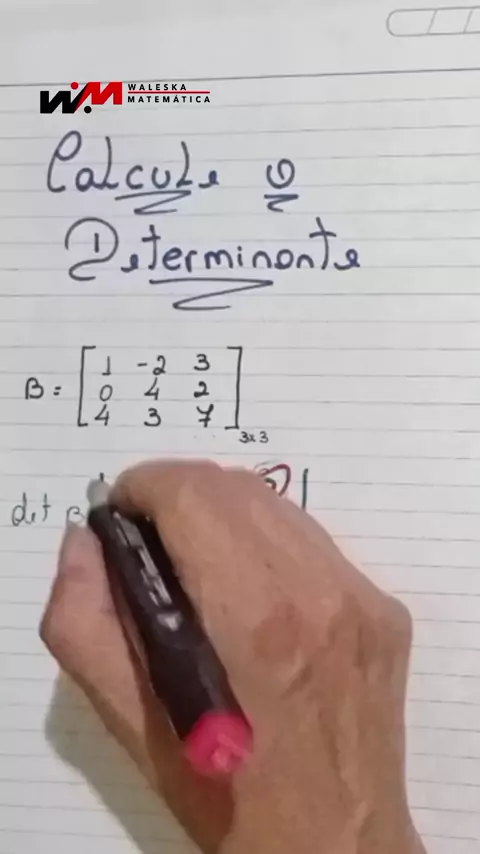 WM WALESKA
MATEMÁTICA
Calcule o
Determinante
B = [ 1 -2 3
0 4 2
4 3 7 ] 3x3
det B